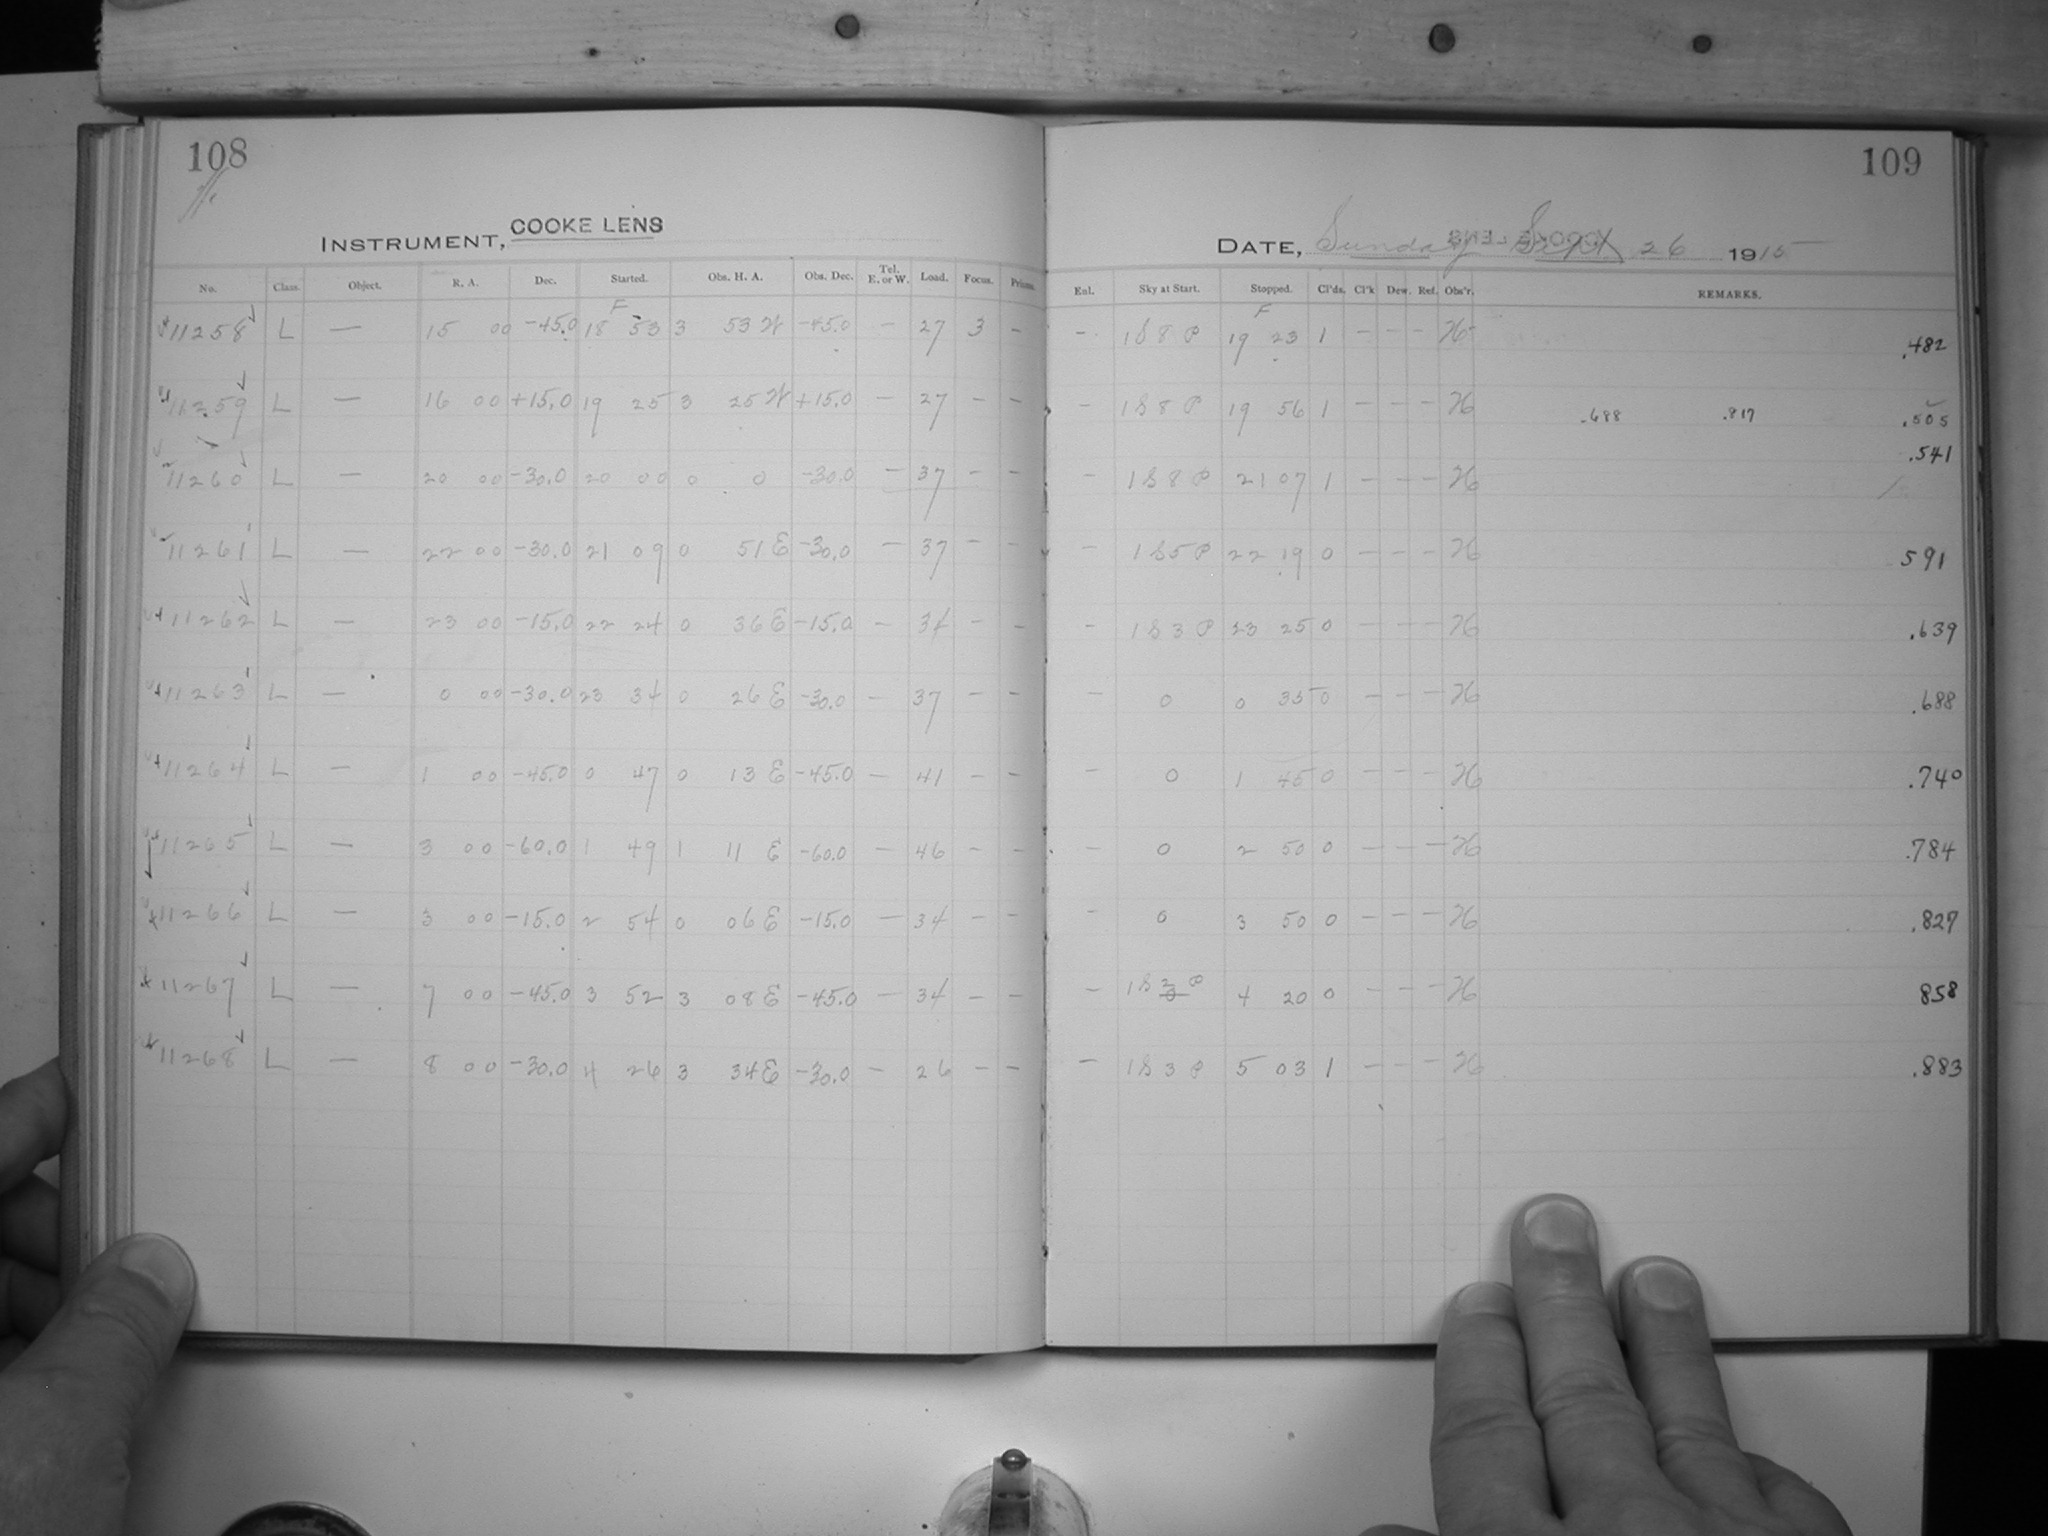 108
109
INSTRUMENT, COOKE LENS
DATE, Sunday Sept 26 1915
COOKE LENS
No. Class. Object. R. A. Dec. Started. Obs. H. A. Obs. Dec. Tel. E. or W. Load. Focus. Prisms. Enl. Sky at Start. Stopped. Cl'ds. Cl'k Dew. Ref. Obs'r. REMARKS.
F F
11258 L — 15 00 -45.0 18 53 3 53 W -45.0 - 27 3 - - 1S8P 19 23 1 - - - H .482
11259 L — 16 00 +15.0 19 25 3 25 W +15.0 - 27 - - - 1S8P 19 56 1 - - - H .688 .817 .505
.541
11260 L — 20 00 -30.0 20 00 0 0 -30.0 - 37 - - - 1S8P 21 07 1 - - - H
11261 L — 22 00 -30.0 21 09 0 51 E -30.0 - 37 - - - 1S5P 22 19 0 - - - H 591
11262 L — 23 00 -15.0 22 24 0 36 E -15.0 - 34 - - - 1S3P 23 25 0 - - - H .639
11263 L — 0 00 -30.0 23 34 0 26 E -30.0 - 37 - - - 0 0 35 0 - - - H .688
11264 L — 1 00 -45.0 0 47 0 13 E -45.0 - 41 - - - 0 1 45 0 - - - H .740
11265 L — 3 00 -60.0 1 49 1 11 E -60.0 - 46 - - - 0 2 50 0 - - - H .784
11266 L — 3 00 -15.0 2 54 0 06 E -15.0 - 34 - - - 0 3 50 0 - - - H .827
11267 L — 7 00 -45.0 3 52 3 08 E -45.0 - 34 - - - 1S2P 4 20 0 - - - H 858
11268 L — 8 00 -30.0 4 26 3 34 E -30.0 - 26 - - - 1S3P 5 03 1 - - - H .883